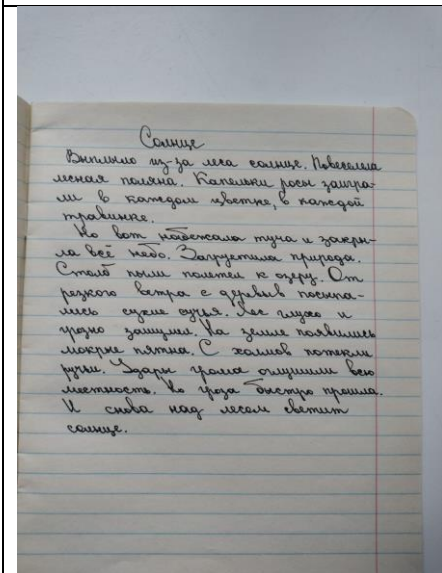 Солнце
Выплыло из-за леса солнце. Повеселела
лесная поляна. Капельки росы заигра-
ли в каждом цветке, в каждой
травинке.
Но вот набежала туча и закры-
ла всё небо. Загрустила природа.
Столб пыли полетел к озеру. От
резкого ветра с деревьев посыпа-
лись сухие сучья. Лес глухо и
грозно зашумел. На земле появились
мокрые пятна. С холмов потекли
ручьи. Удары грома оглушили всю
местность. Но гроза быстро прошла.
И снова над лесом светит
солнце.